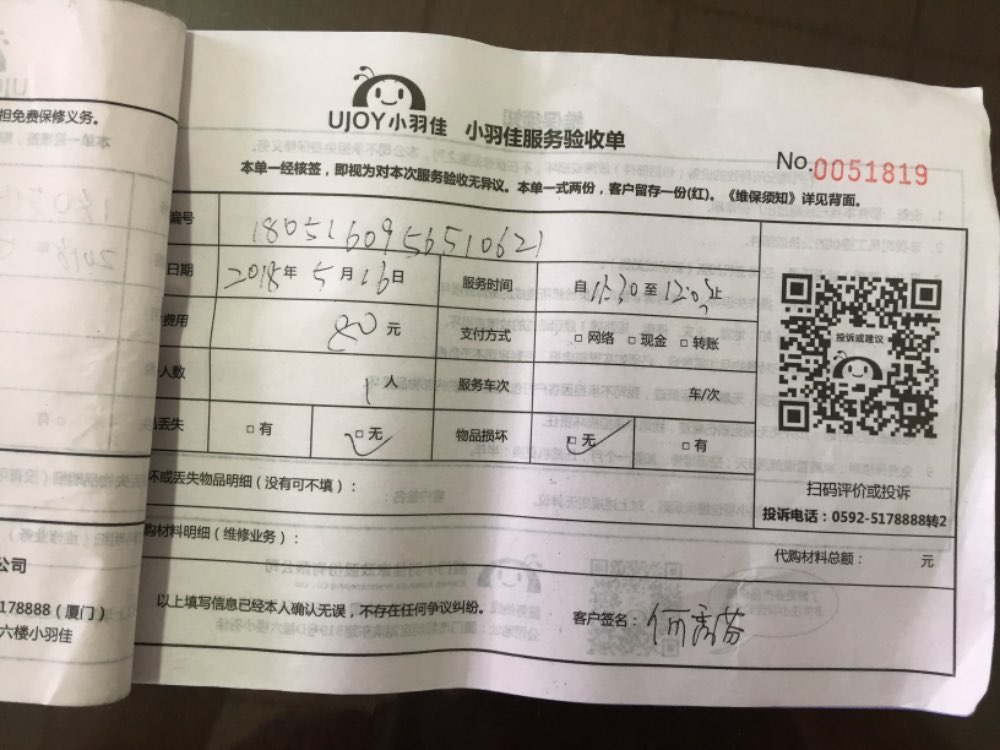 担免费保修义务。
UJOY小羽佳 小羽佳服务验收单
No.0051819
本单一经核签，即视为对本次服务验收无异议。本单一式两份，客户留存一份(红)。《维保须知》详见背面。
编号 1805160956510621
日期 2018年5月16日 服务时间 自11:30至12:0 止
费用 80元 支付方式 □网络 □现金 □转账
人数 1人 服务车次 车/次
丢失 □有 □无 物品损坏 □无 □有
投诉或建议
扫码评价或投诉
投诉电话：0592-5178888转2
坏或丢失物品明细（没有可不填）：
购材料明细（维修业务）：
代购材料总额： 元
以上填写信息已经本人确认无误，不存在任何争议纠纷。
客户签名：何秀芬
公司
178888（厦门）
六楼小羽佳